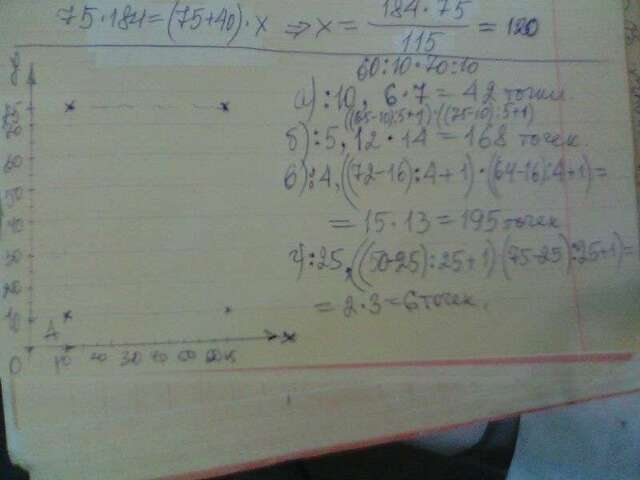 75·184=(75+40)·x ⇒ x = 184·75 / 115 = 120
60:10·70:10
а):10, 6·7 = 42 точки.
((65-10):5+1)·((75-10):5+1)
б):5, 12·14 = 168 точек.
в):4, ((72-16):4+1)·((64-16):4+1)=
= 15·13 = 195 точек
г):25, ((50-25):25+1)·(75-25):25+1)=
= 2·3=6 точек.
y
75
70
60
50
40
30
20
10
A
0
10
20
30
40
50
60
65
x